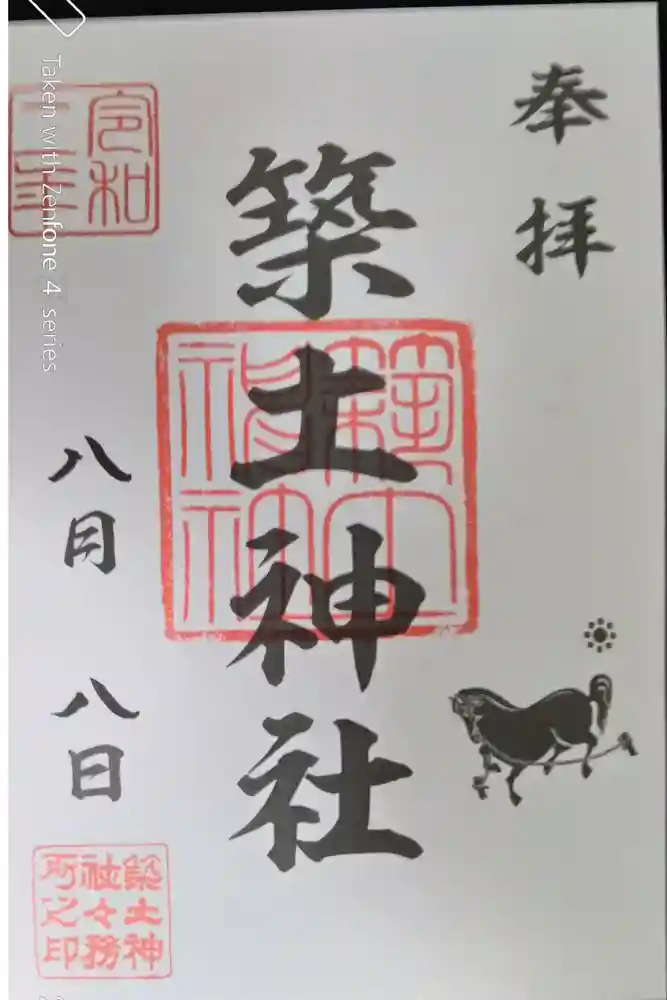 奉拝
築土神社
令和二年
八月八日
築土神社々務所之印
Taken with Zenfone 4 series